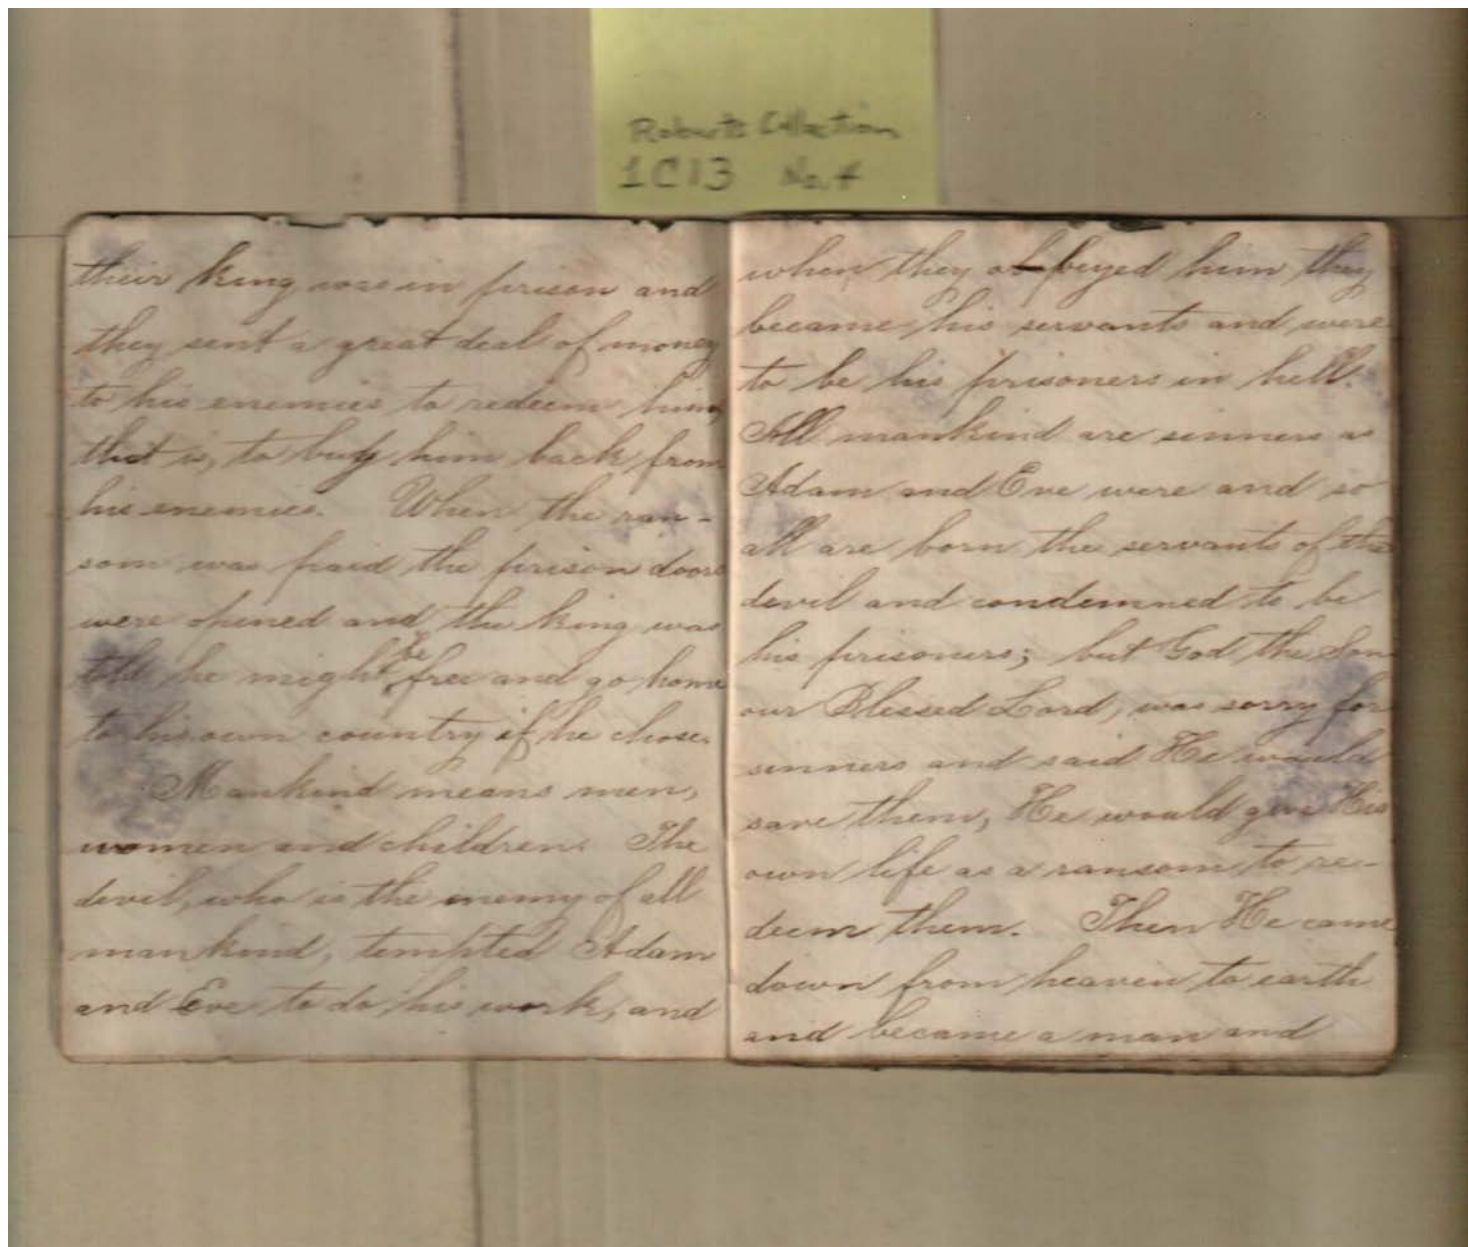 Roberts Collection
1C13 No. 4
their king was in prison and
they sent a great deal of money
to his enemies to redeem him,
that is, to buy him back from
his enemies. When the ran-
som was paid the prison doors
were opened and the king was
told he might be free and go home
to his own country if he chose.
Mankind means men,
women and children. The
devil, who is the enemy of all
mankind, tempted Adam
and Eve to do his work, and
when they obeyed him they
became his servants and were
to be his prisoners in hell.
All mankind are sinners as
Adam and Eve were and so
all are born the servants of the
devil and condemned to be
his prisoners; but God the Son
our Blessed Lord, was sorry for
sinners and said He would
save them, He would give His
own life as a ransom to re-
deem them. Then He came
down from heaven to earth
and became a man and